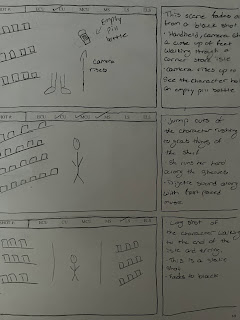 Empty
pin
bottle
camera
rises
This scene fades
from a black shot
- Handheld, camera
a close up of feet
walking through a
corner store isle
- camera rises up to
See the character
an empty pin bottle
Jump cuts of
the character rushing
to grab things of
the shelf
- She runs her hand
along the shelves
- Diegetic sound along
with fast paced
music
Long shot of
the character walking
to the end of the
isle and turning.
- This is a static
shot
- Fades to black